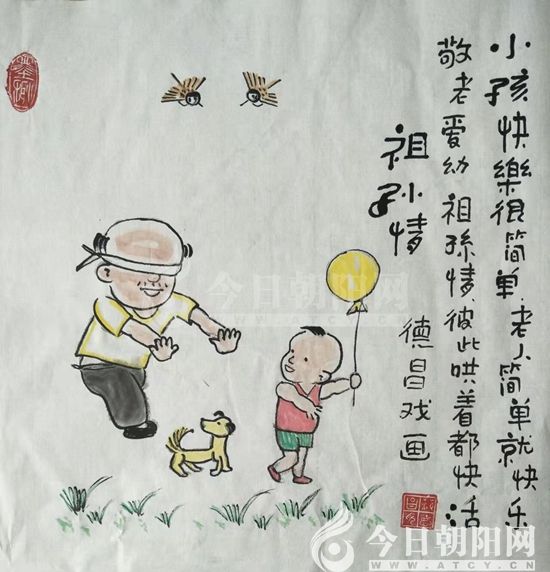 小孩快樂很简单,老小简单就快乐
敬老爱幼 祖孫情,彼此哄着都快活
祖孙情
德昌戏画
今日朝阳网
今日朝阳网
WWW.ATCY.CN